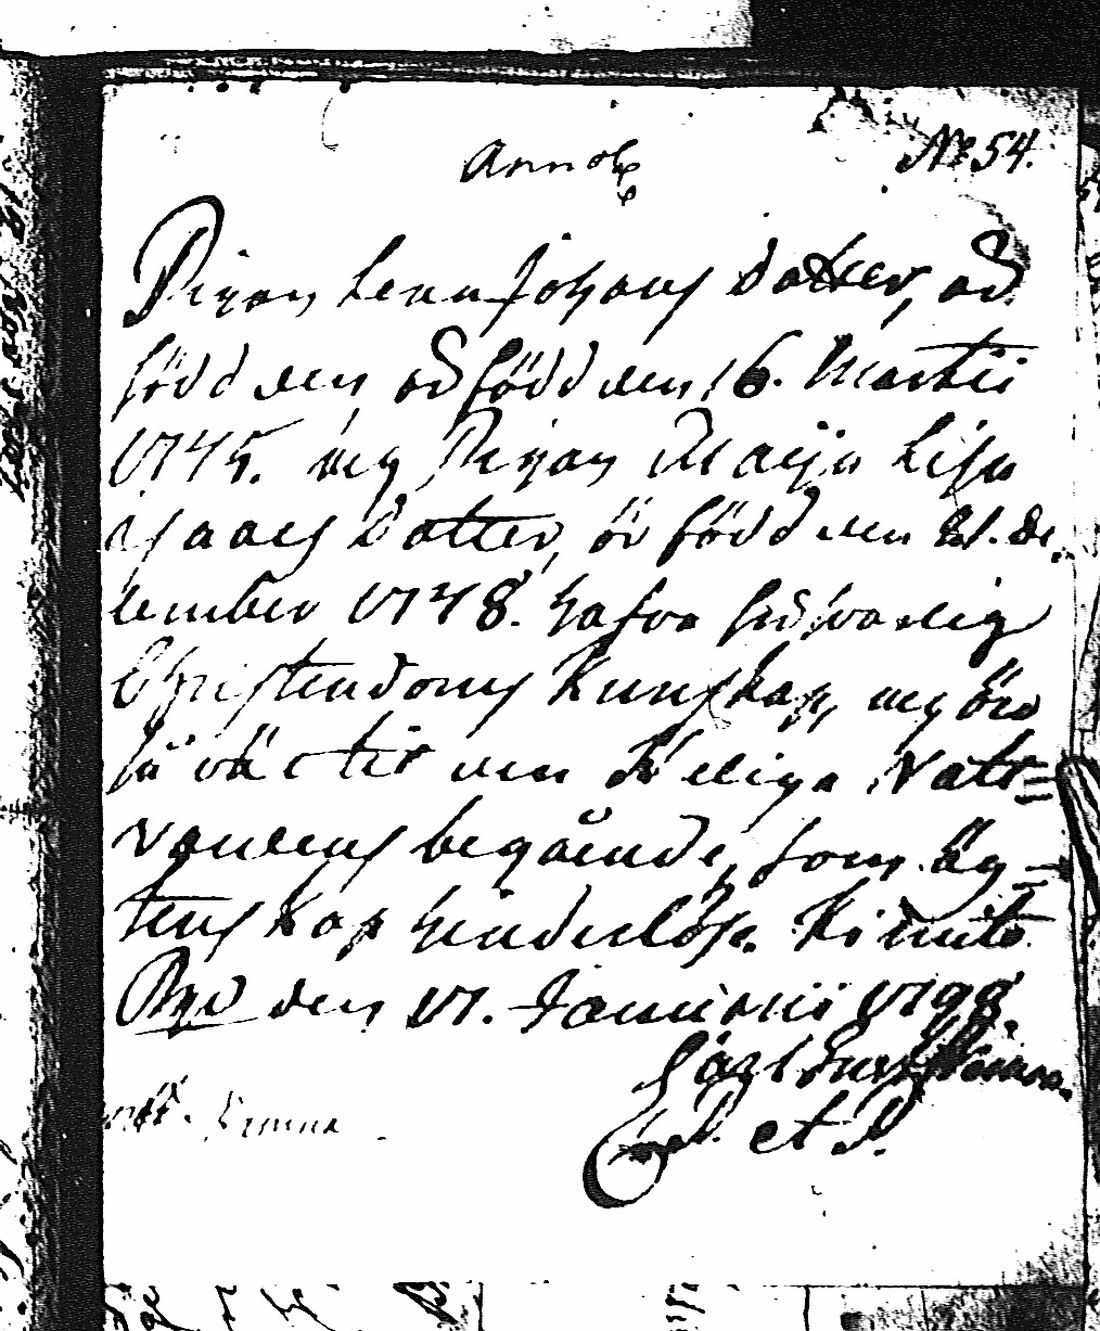 Annot
No 54.
Pigan Lena Johans dotter, är
född den är född den 16. Martii
1745. och Pigan Maija Lisa
Isaacs dotter, är född den 21. De
cember 1778. hafva förswarlig
Christendoms Kunskap, och äro
så väl til den Heliga Natt=
vardens begående, som äg=
tenskap hinderlöse. Kimito
den 17. Januarii 1798.
et P.